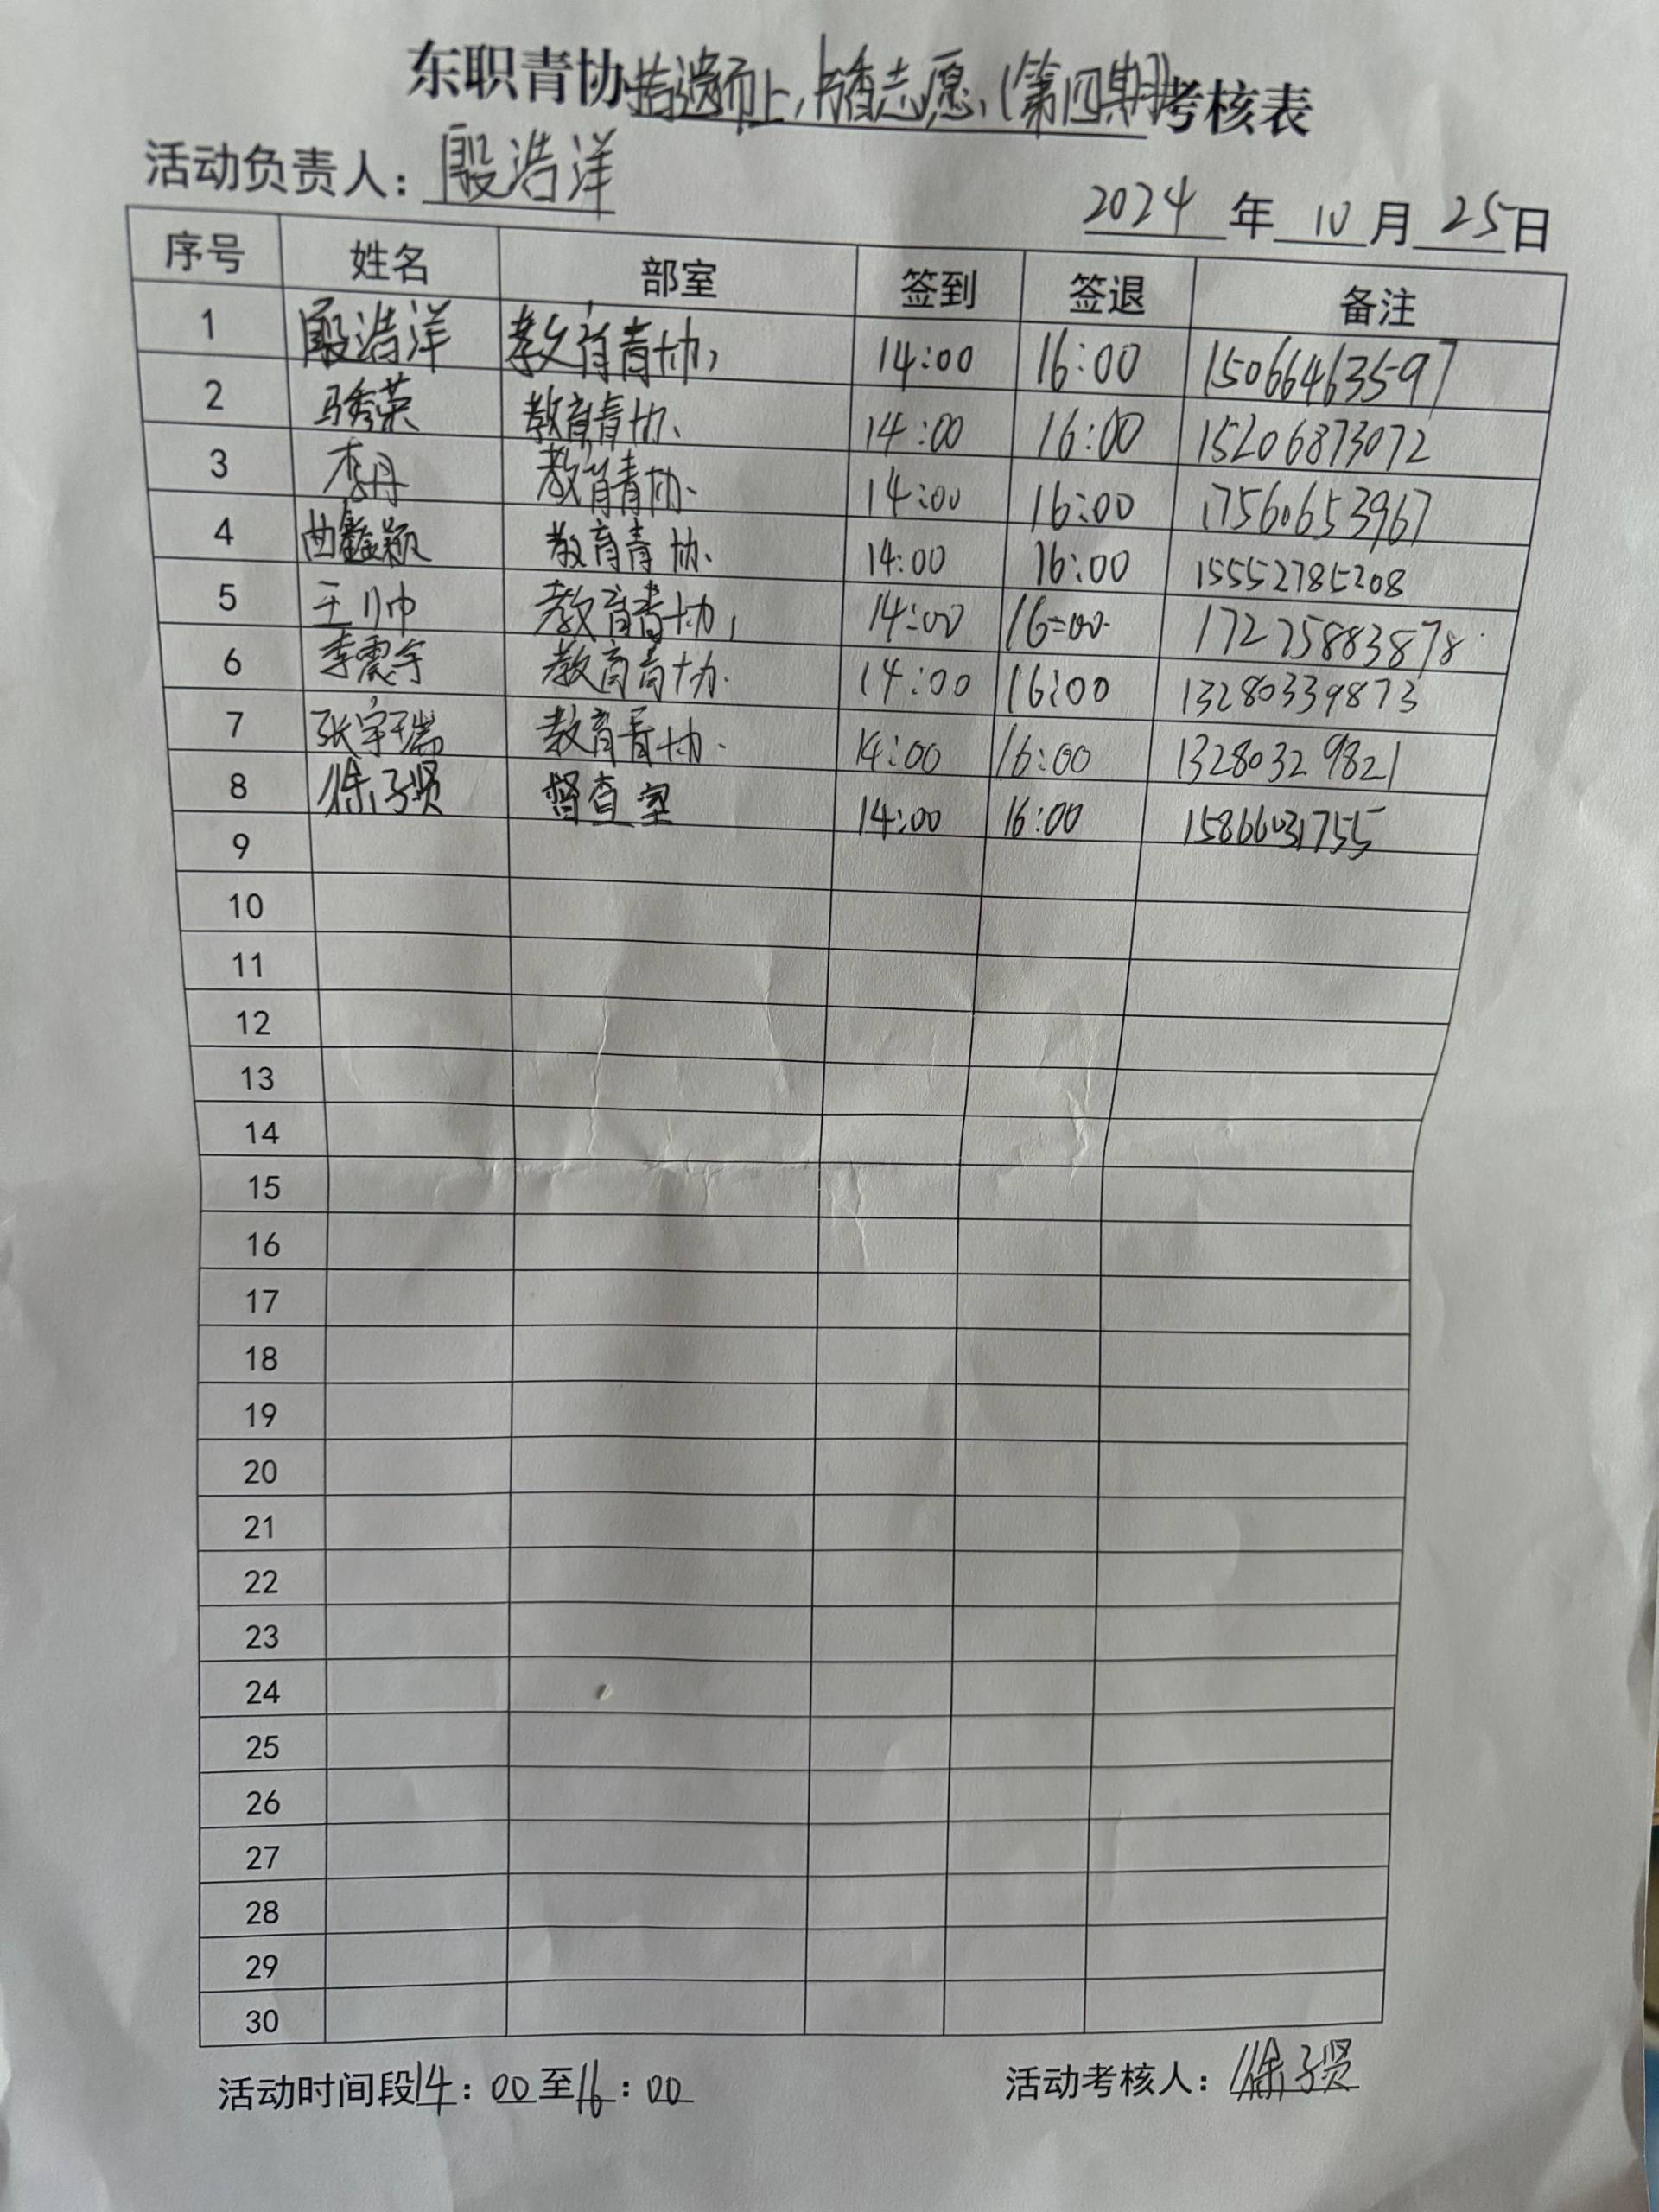 东职青协拾遗而上,书香志愿、(第四期)考核表
活动负责人:殷浩洋
2024年10月25日
序号 姓名 部室 签到 签退 备注
1 殷浩洋 教育青协, 14:00 16:00 15066463597
2 马秀荣 教育青协、 14:00 16:00 15206873072
3 李丹 教育青协、 14:00 16:00 17560653967
4 曲鑫颖 教育青协、 14:00 16:00 15552785208
5 王帅 教育青协, 14:00 16:00 17275883878
6 李震宇 教育青协. 14:00 16:00 13280339873
7 张宇瑞 教育青协. 14:00 16:00 13280329821
8 徐子贤 督查室 14:00 16:00 15866031755
9
10
11
12
13
14
15
16
17
18
19
20
21
22
23
24
25
26
27
28
29
30
活动时间段14:00至16:00 活动考核人:徐子贤